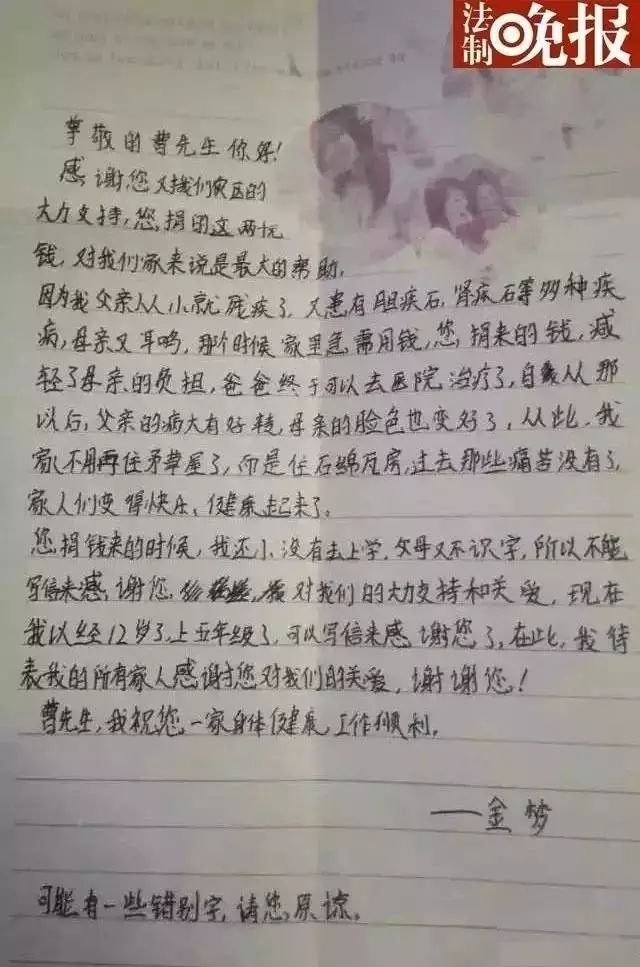 法制晚报
尊敬的曹先生你好!
感谢您又找我们灾区的
大力支持,您捐的这两忨
钱,对我们家来说是最大的帮助,
因为我父亲从人小就残疾了,又患有胆疾石,肾疾石等多种疾
病,母亲又耳鸣,那个时候家里急需用钱,您捐来的钱,减
轻了母亲的负担,爸爸终于可以去医院治疗了,自从那
以后,父亲的病大有好转,母亲的脸色也变好了,从此,我
家不用再住矛草屋了,而是住石绵瓦房,过去那些痛苦没有了,
家人们变得快乐、健康起来了。
您捐钱来的时候,我还小,没有去上学,父母又不识字,所以不能
写信来感谢您,对我们的大力支持和关爱,现在
我以经12岁了,上五年级了,可以写信来感谢您了,在此,我待
表我的所有家人感谢您对我们的关爱,谢谢您!
曹先生,我祝您一家身体健康,工作顺利。
——金梦
可能有一些错别字,请您原谅。